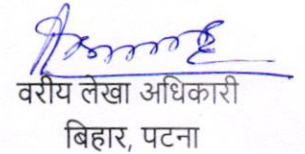 वरीय लेखा अधिकारी
बिहार, पटना